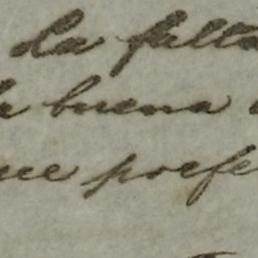 la falta
buena
que profe